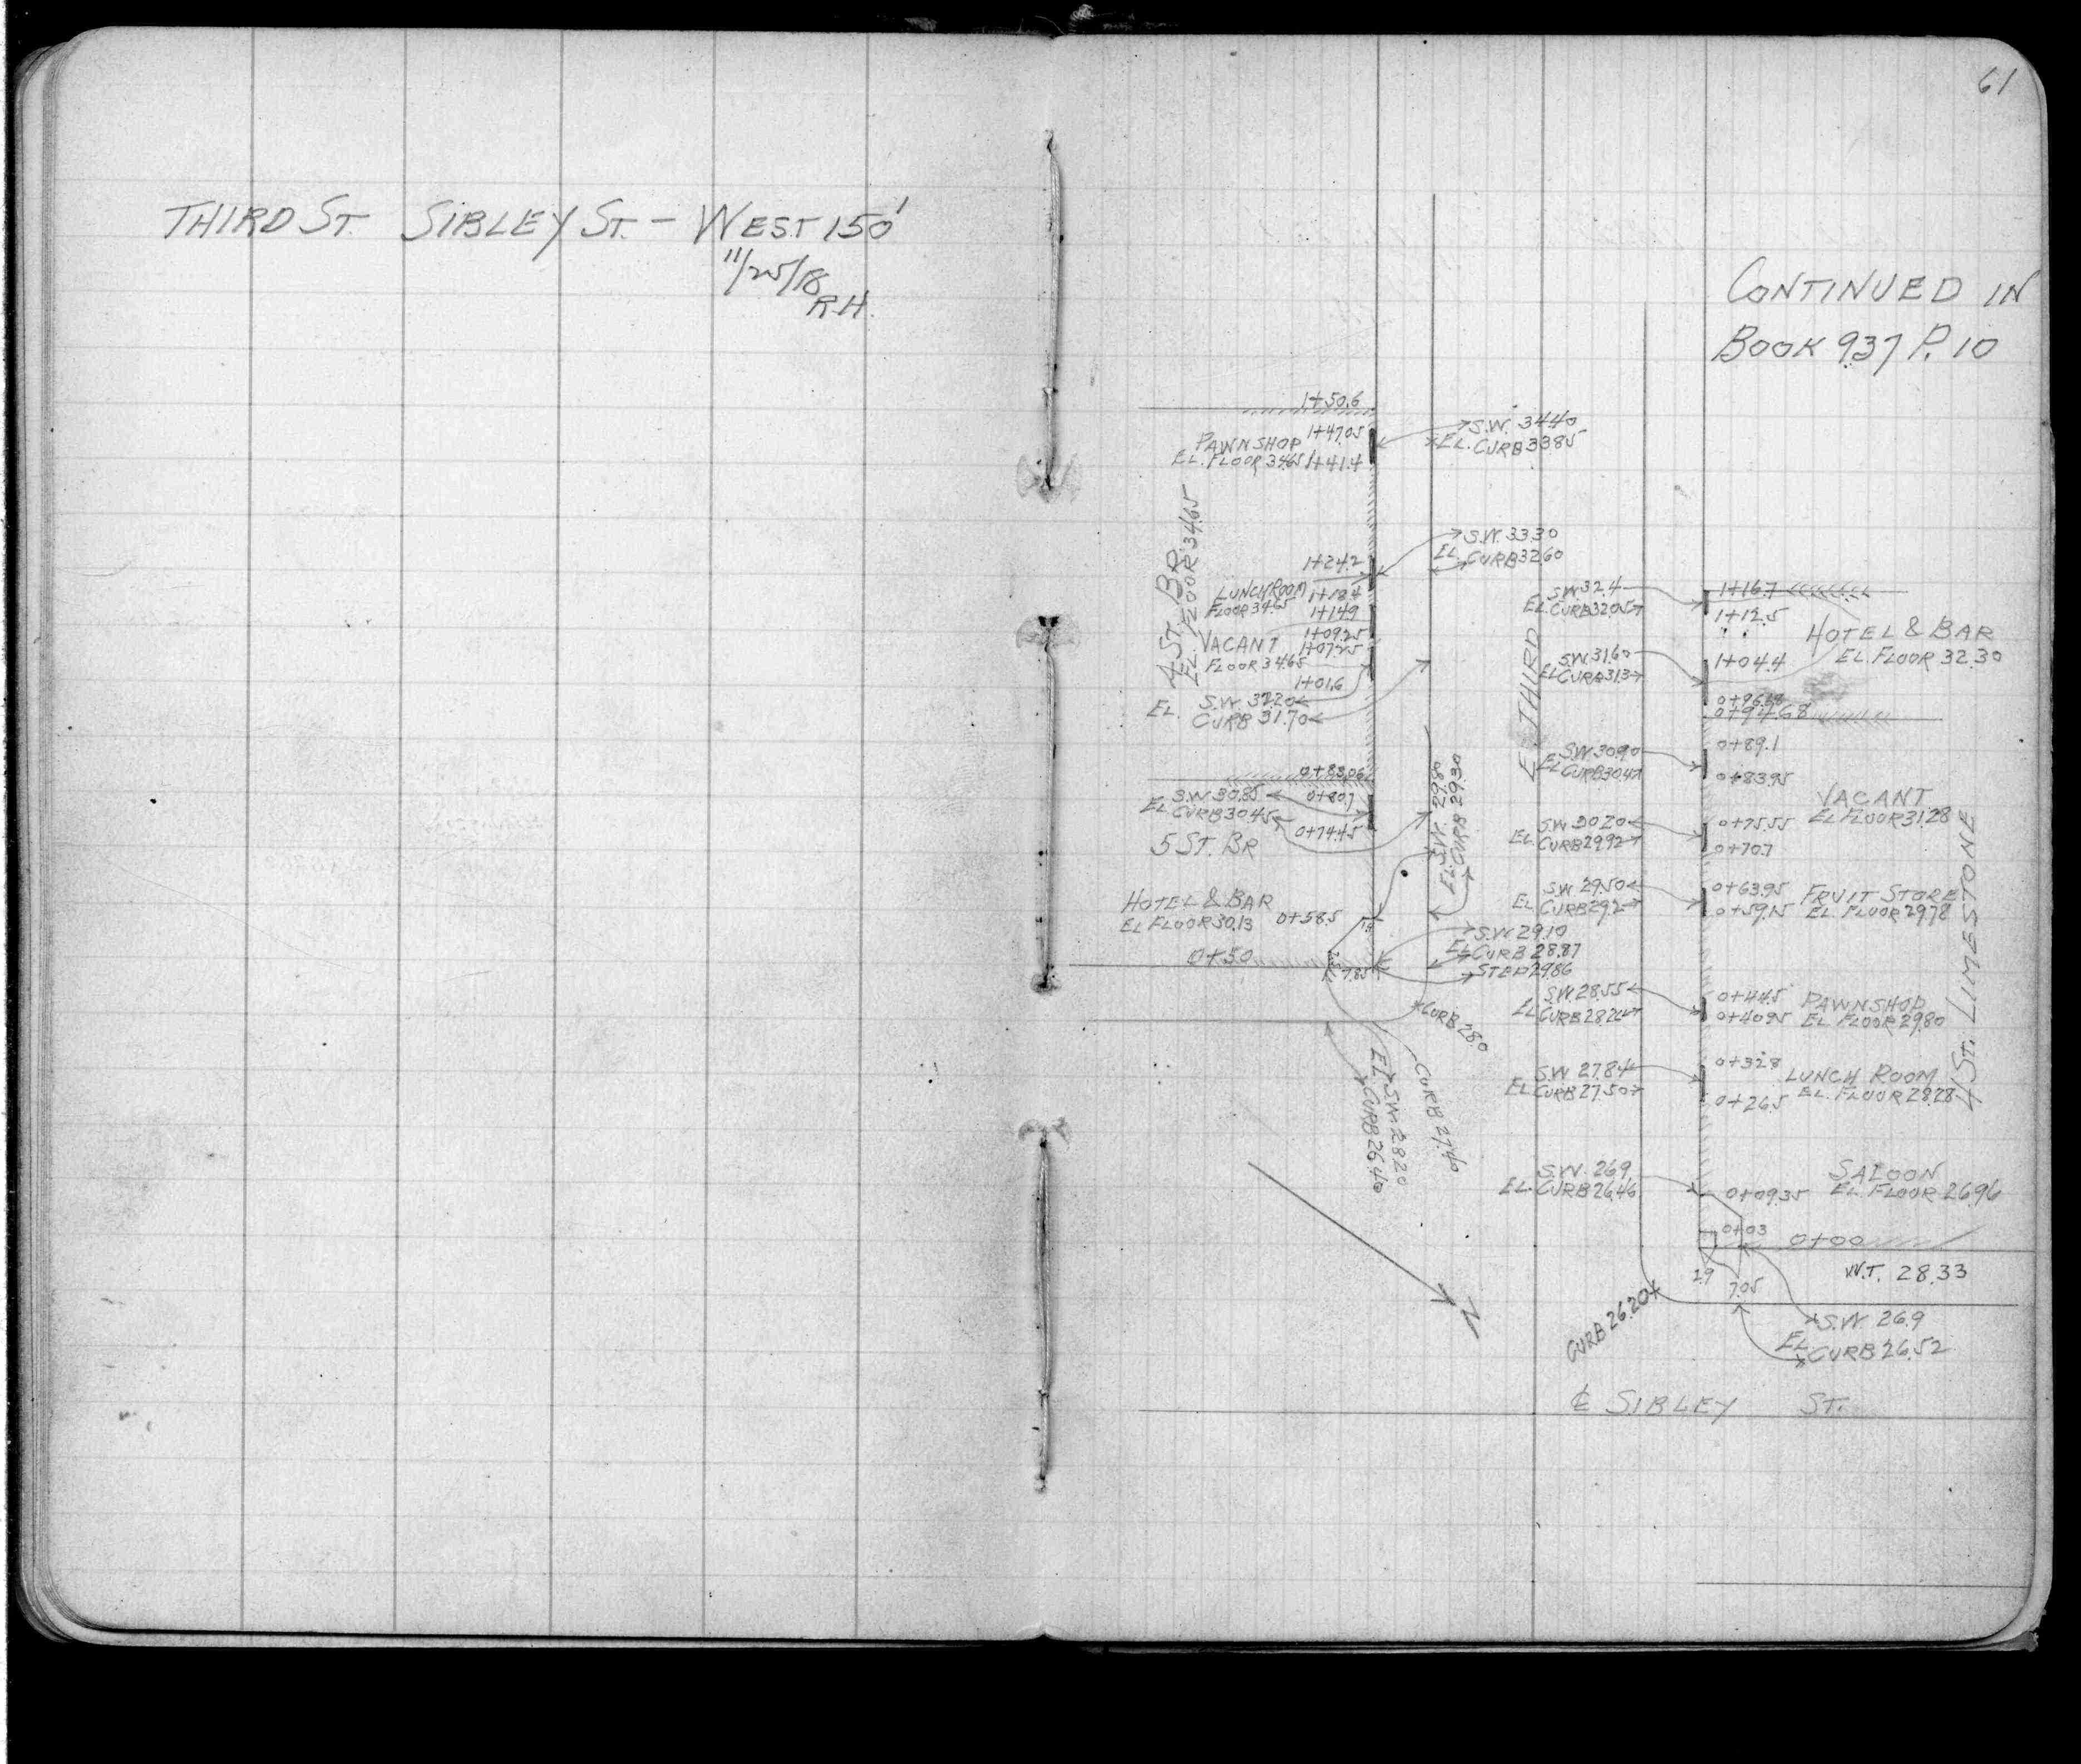 THIRD ST. SIBLEY ST. - WEST 150'
11/25/18
R.H.
61
CONTINUED IN
BOOK 937 P. 10
1+50.6
PAWNSHOP 1+47.05
EL. FLOOR 34.65 1+41.4
S.W. 34.40
EL. CURB 33.85
4 ST. BR.
EL. FLOOR 34.65
S.W. 33.30
EL. CURB 32.60
1+24.2
LUNCH ROOM 1+18.4
FLOOR 34.65
1+14.9
VACANT 1+09.25
1+07.25
FLOOR 34.65
1+01.6
S.W. 32.20
EL. CURB 31.70
0+83.06
S.W. 30.85 0+80.7
EL. CURB 30.45
0+74.45
5 ST. BR
EL. S.W. 29.80
CURB 29.30
HOTEL & BAR
EL FLOOR 30.13 0+58.5
0+50
7.85
S.W. 29.10
EL CURB 28.87
STEP 29.86
CURB 28.0
CURB 27.40
EL. SW 28.20
CURB 26.40
N
E. THIRD
S.W. 32.4
EL. CURB 32.05
1+16.7
1+12.5
HOTEL & BAR
EL. FLOOR 32.30
S.W. 31.60
EL CURB 31.3
1+04.4
0+94.68
S.W. 30.90
EL CURB 30.47
0+89.1
0+83.95
VACANT
EL FLOOR 31.28
S.W. 30.20
EL. CURB 29.92
0+75.55
0+70.7
4 ST. LIMESTONE
S.W. 29.50
EL. CURB 29.2
0+63.95 FRUIT STORE
0+59.15 EL. FLOOR 29.78
S.W. 28.55
EL CURB 28.26
0+44.5 PAWNSHOP
0+40.95 EL FLOOR 29.80
S.W. 27.84
EL. CURB 27.50
0+32.8 LUNCH ROOM
0+26.5 EL. FLOOR 28.28
S.W. 26.9
EL. CURB 26.46
SALOON
0+09.35 EL. FLOOR 26.96
0+03
0+00
W.T. 28.33
2.9
7.05
CURB 26.20
S.W. 26.9
EL. CURB 26.52
℄ SIBLEY ST.